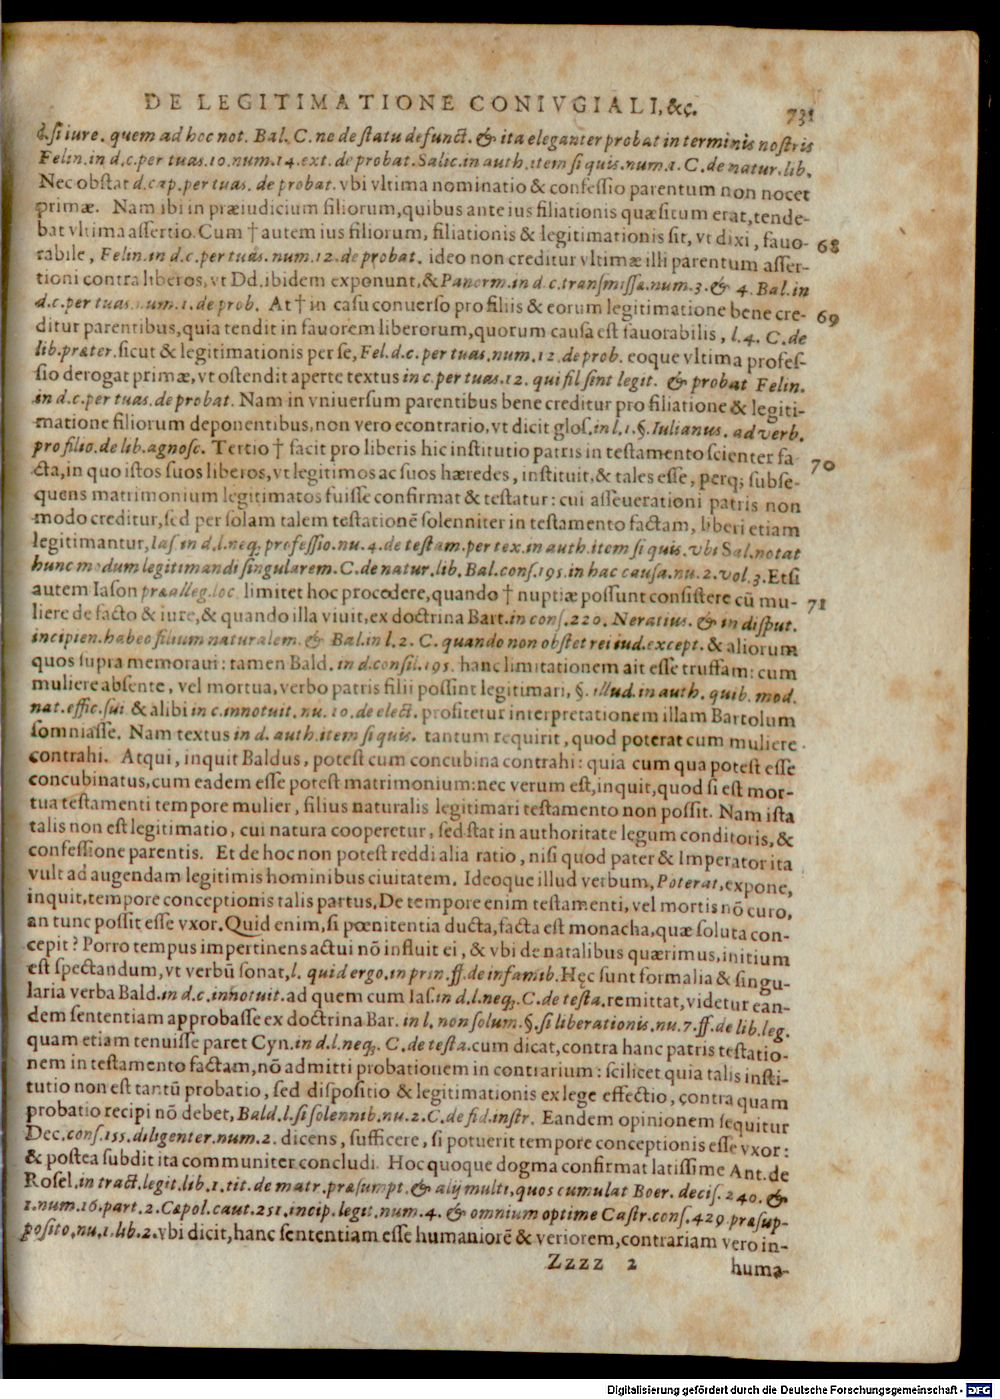 DE LEGITIMATIONE CONIVGIALI, &c. 731
d.si iure. quem ad hoc not. Bal. C. ne de statu defunct. & ita eleganter probat in terminis nostris
Felin. in d. c. per tuas. 10. num. 14. ext. de probat. Salic. in auth. item si quis. num. 1. C. de natur. lib.
Nec obstat d. cap. per tuas. de probat. vbi vltima nominatio & confessio parentum non nocet
primæ. Nam ibi in præiudicium filiorum, quibus ante ius filiationis quæsitum erat, tende-
bat vltima assertio. Cum † autem ius filiorum, filiationis & legitimationis sit, vt dixi, fauo- 68
rabile, Felin. in d. c. per tuas. num. 12. de probat. ideo non creditur vltimæ illi parentum asser-
tioni contra liberos, vt Dd. ibidem exponunt, & Panorm. in d. c. transmissæ. num. 3. & 4. Bal. in
d. c. per tuas. num. 1. de prob. At † in casu conuerso pro filiis & eorum legitimatione bene cre- 69
ditur parentibus, quia tendit in fauorem liberorum, quorum causa est fauorabilis, l. 4. C. de
lib. præter. sicut & legitimationis per se, Fel. d. c. per tuas. num. 12. de prob. eoque vltima profes-
sio derogat primæ, vt ostendit aperte textus in c. per tuas. 12. qui fil sint legit. & probat Felin.
in d. c. per tuas. de probat. Nam in vniuersum parentibus bene creditur pro filiatione & legiti-
matione filiorum deponentibus, non vero econtrario, vt dicit glos. in l. 1. §. Iulianus. ad verb.
pro filio. de lib. agnosc. Tertio † facit pro liberis hic institutio patris in testamento scienter fa- 70
cta, in quo istos suos liberos, vt legitimos ac suos hæredes, instituit, & tales esse, perq; subse-
quens matrimonium legitimatos fuisse confirmat & testatur: cui asseuerationi patris non
modo creditur, sed per solam talem testationē solenniter in testamento factam, liberi etiam
legitimantur, Ias. in d. l. neq; professio. nu. 4. de testam. per tex. in auth. item si quis. vbi Sal. notat
hunc modum legitimandi singularem. C. de natur. lib. Bal. cons. 195. in hac causa. nu. 2. vol. 3. Etsi
autem Iason præalleg. loc. limitet hoc procedere, quando † nuptiæ possunt consistere cū mu- 71
liere de facto & iure, & quando illa viuit, ex doctrina Bart. in cons. 220. Neratius. & in disput.
incipien. habeo filium naturalem. & Bal. in l. 2. C. quando non obstet rei iud. except. & aliorum
quos supra memoraui: tamen Bald. in d. consil. 195. hanc limitationem ait esse truffam: cum
muliere absente, vel mortua, verbo patris filii possint legitimari, §. illud. in auth. quib. mod.
nat. effic. sui & alibi in c. innotuit. nu. 10. de elect. profitetur interpretationem illam Bartolum
somniasse. Nam textus in d. auth. item si quis. tantum requirit, quod poterat cum muliere
contrahi. Atqui, inquit Baldus, potest cum concubina contrahi: quia cum qua potest esse
concubinatus, cum eadem esse potest matrimonium: nec verum est, inquit, quod si est mor-
tua testamenti tempore mulier, filius naturalis legitimari testamento non possit. Nam ista
talis non est legitimatio, cui natura cooperetur, sed stat in authoritate legum conditoris, &
confessione parentis. Et de hoc non potest reddi alia ratio, nisi quod pater & Imperator ita
vult ad augendam legitimis hominibus ciuitatem. Ideoque illud verbum, Poterat, expone,
inquit, tempore conceptionis talis partus. De tempore enim testamenti, vel mortis nō curo,
an tunc possit esse vxor. Quid enim, si pœnitentia ducta, facta est monacha, quæ soluta con-
cepit? Porro tempus impertinens actui nō influit ei, & vbi de natalibus quærimus, initium
est spectandum, vt verbū sonat, l. quid ergo. in prin. ff. de infamib. Hęc sunt formalia & singu-
laria verba Bald. in d. c. innotuit. ad quem cum Ias. in d. l. neq;. C. de testa. remittat, videtur ean-
dem sententiam approbasse ex doctrina Bar. in l. non solum. §. si liberationis. nu. 7. ff. de lib. leg.
quam etiam tenuisse paret Cyn. in d. l. neq;. C. de testa. cum dicat, contra hanc patris testatio-
nem in testamento factam, nō admitti probationem in contrarium: scilicet quia talis insti-
tutio non est tantū probatio, sed dispositio & legitimationis ex lege effectio, contra quam
probatio recipi nō debet, Bald. l. si solennib. nu. 2. C. de fid. instr. Eandem opinionem sequitur
Dec. cons. 155. diligenter. num. 2. dicens, sufficere, si potuerit tempore conceptionis esse vxor:
& postea subdit ita communiter concludi. Hoc quoque dogma confirmat latissime Ant. de
Rosel. in tract. legit. lib. 1. tit. de matr. præsumpt. & alij multi, quos cumulat Boer. decis. 240. &
1. num. 16. part. 2. Cæpol. caut. 251. incip. legit. num. 4. & omnium optime Castr. cons. 429. præsup-
posito. nu. 1. lib. 2. vbi dicit, hanc sententiam esse humaniorē & veriorem, contrariam vero in-
Zzzz 2 huma-
Digitalisierung gefördert durch die Deutsche Forschungsgemeinschaft - DFG